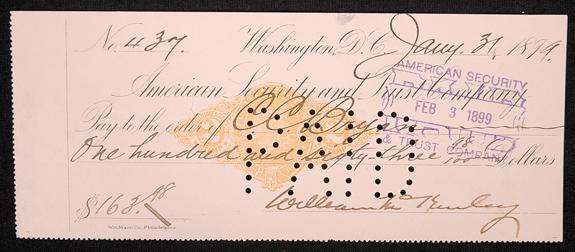 No. 437. Washington, D.C. Jany. 31, 1899.
American Security and Trust Company
AMERICAN SECURITY
FEB 3 1899
& TRUST COMPANY
Pay to the order of C.C.
PAID
One hundred and sixty-three 98/100 Dollars
$163.98
William McKinley